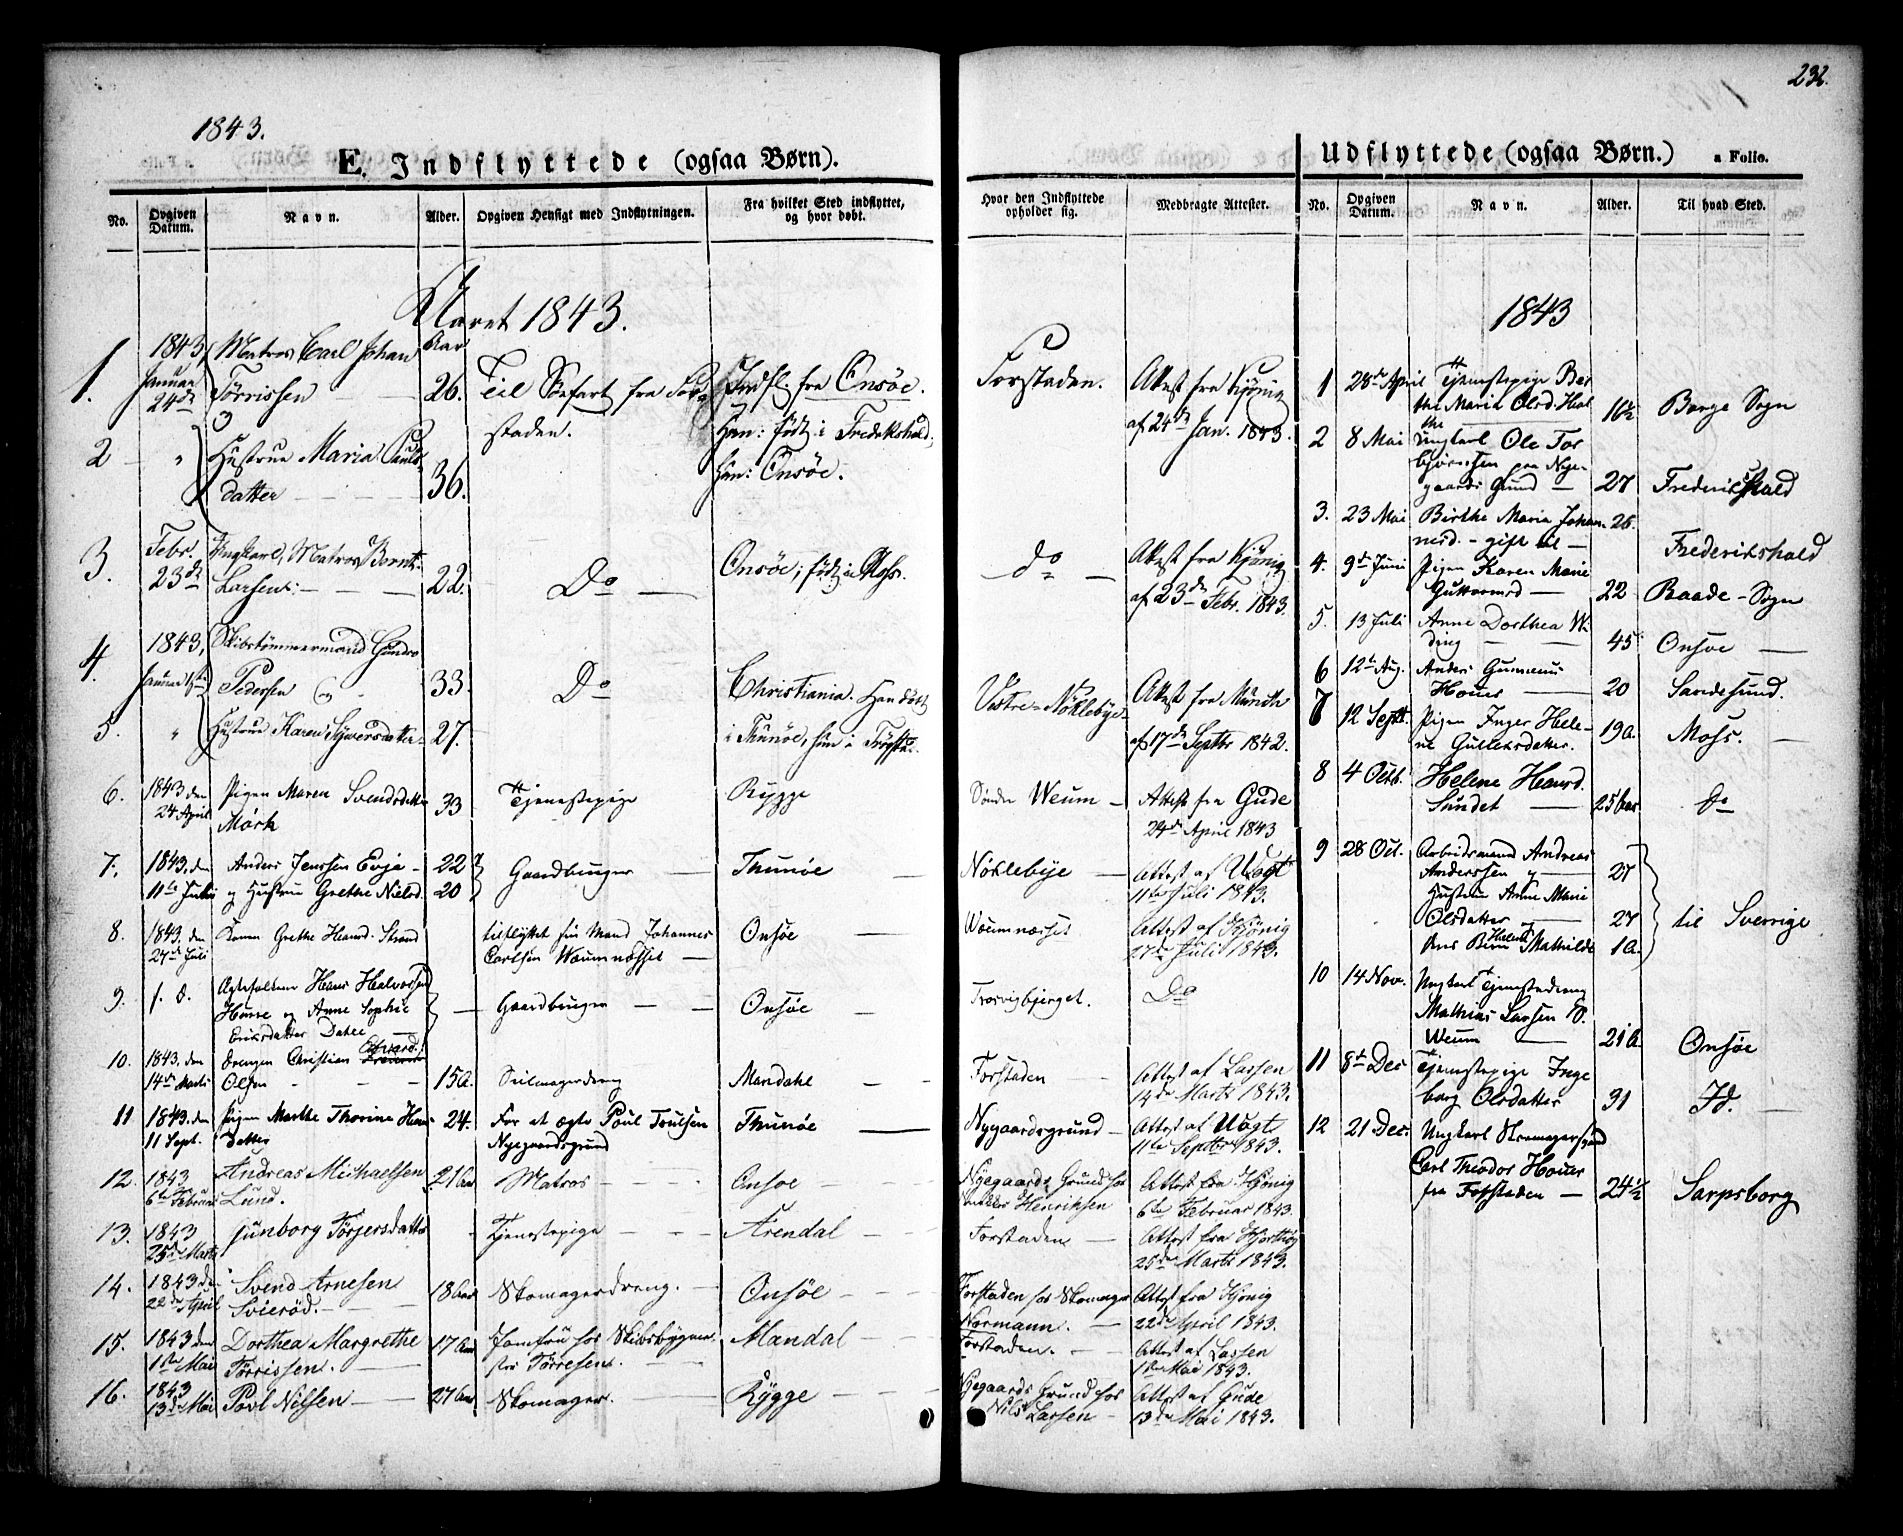 232.
1843.
E. Indflyttede (ogsaa Børn).
No.
Opgiven Datum.
Navn.
Alder.
Opgiven Hensigt med Indflytningen.
Fra hvilket Sted indflyttet, og hvor døbt.
Hvor den Indflyttede opholder sig.
Medbragte Attester.
Aaret 1843.
1. 1843, Januar 24de Matros Carl Johan Tørrissen Aar 26. Til Søefart fra Forstaden. Indfl. fra Onsøe. Han: født i Fredrikshald, Forstaden. Attest fra af 24de Jan. 1843.
2 " Hustrue Maria Pauls-
datter 36. Hun: Onsøe.
3. Febr. 23de Ungkarl, Matros Bernt Larsen 22. Do Onsøe, født i Moss. do Attest fra af 23de Febr. 1843.
4. 1843, Januar Skibstømmermand Pedersen og 33. Do Christiania. Han døbt Vestre-Nøklebye Attest fra Münch
5. " Hustrue Karen Syversdatter 27. i Thunøe, hun i af 17de Septbr 1842.
6. 1843 den 24 April Pigen Maren Svendsdatter Mørk 33 Tjenestepige Rygge Søndre Weum Attest fra Gude 24de April 1843
7. 1843 den 11te Juli Anders Jenssen Evje 22 og Hustrue Grethe Nielsd. 20 Gaardbruger Thunøe Nøklebye Attest af Vogt 11te Juli 1843.
8. 1843 den 27de Juli Konen Grethe Hansd. Strand tilflyttet sin Mand Johannes Carlsen Weumnæsset Onsøe Weumnæsset Attest af 27de Juli 1843.
9. f. d. Ægtefolkene Hans Halvorsen og Anne Sophie Eriksdatter Gaardbruger Onsøe Trosvigbjerget. Do
10. 1843. den 14de Marts Drengen Christian Edvard Olsen 15 A. Mandahl Forstaden Attest af Lassen 14de Marts 1843.
11 1843. den 11 Sept. Pigen Marthe Thorine Hans-
datter 24. For at ægte Poul Poulsen Nygaardsgrund Thunøe Nygaardsgrund Attest af Vogt 11te Septbr 1843.
12. 1843 6te Februar Andreas Michaelsen Lund. 21 Aar Matros Onsøe Nyegaards Grund hos Henriksen Attest fra 6te Februar 1843
13. 1843 25de Marts Gunborg Torgersdatter Tjenestepige Arendal Forstaden Attest fra 25de Marts 1843.
14. 1843 den 22de April Svend Arnesen Svierød. 18 Aar Skomagerdreng. Onsøe Forstaden hos Skomager Normann. Attest fra 22de April 1843.
15. 1843 den 1ste Mai Dorthea Margrethe Tørrissen. 17 Aar Jomfru hos Skibsbygmester Tørresen. Mandal Forstaden. Attest af Lassen 1ste Mai 1843.
16. 1843 13de Mai Povl Nilsen 27 Aar Skomager. Rygge Nyegaards Grund hos Nils Larsen Attest af Gude 13de Mai 1843.
Udflyttede (ogsaa Børn.) a Folio.
No.
Opgiven Datum.
Navn.
Alder.
Til hvad Sted.
1843
1 28de April Tjenestepige Ber-
the Maria Olsd. 16½ Borge Sogn
2 8 Mai Ungkarl Ole Tor-
bjørnsen fra Nye-
gaards Grund 27 Frederikshald
3. 23 Mai Birthe Maria Johan-
nesd. - gift til - 26. Frederikshald
4. 9de Juni Pigen Karen Marie Guttormsd 22 Raade-Sogn
5. 13 Juli Anne Dorthea Wi-
ding 45 Onsøe
6 12te Aug. Anders Gunnerius Houer 20 Sandesund.
7 12 Septbr. Pigen Inger Hele-
ne Gulleksdatter. 19 A. Moss.
8 4 Octb. Helene Hansd. Sundet 25 Aar Do
9 28 Oct. Arbeidsmand Andreas Anderssen og 27
Hustru Anne Marie Olsdatter 27 til Sverrige
Barn Helene Mathilde 1 A.
10 14 Nov. Ungkarl Tjenestedreng Mathias Larsen Weum 21 A Onsøe
11 8de Dec Tjenestepige Inge-
borg Olsdatter 31 Id.
12 21 Dec. Ungkarl Skomagersvend Carl Theodor Houer fra Forstaden 24½ Sarpsborg